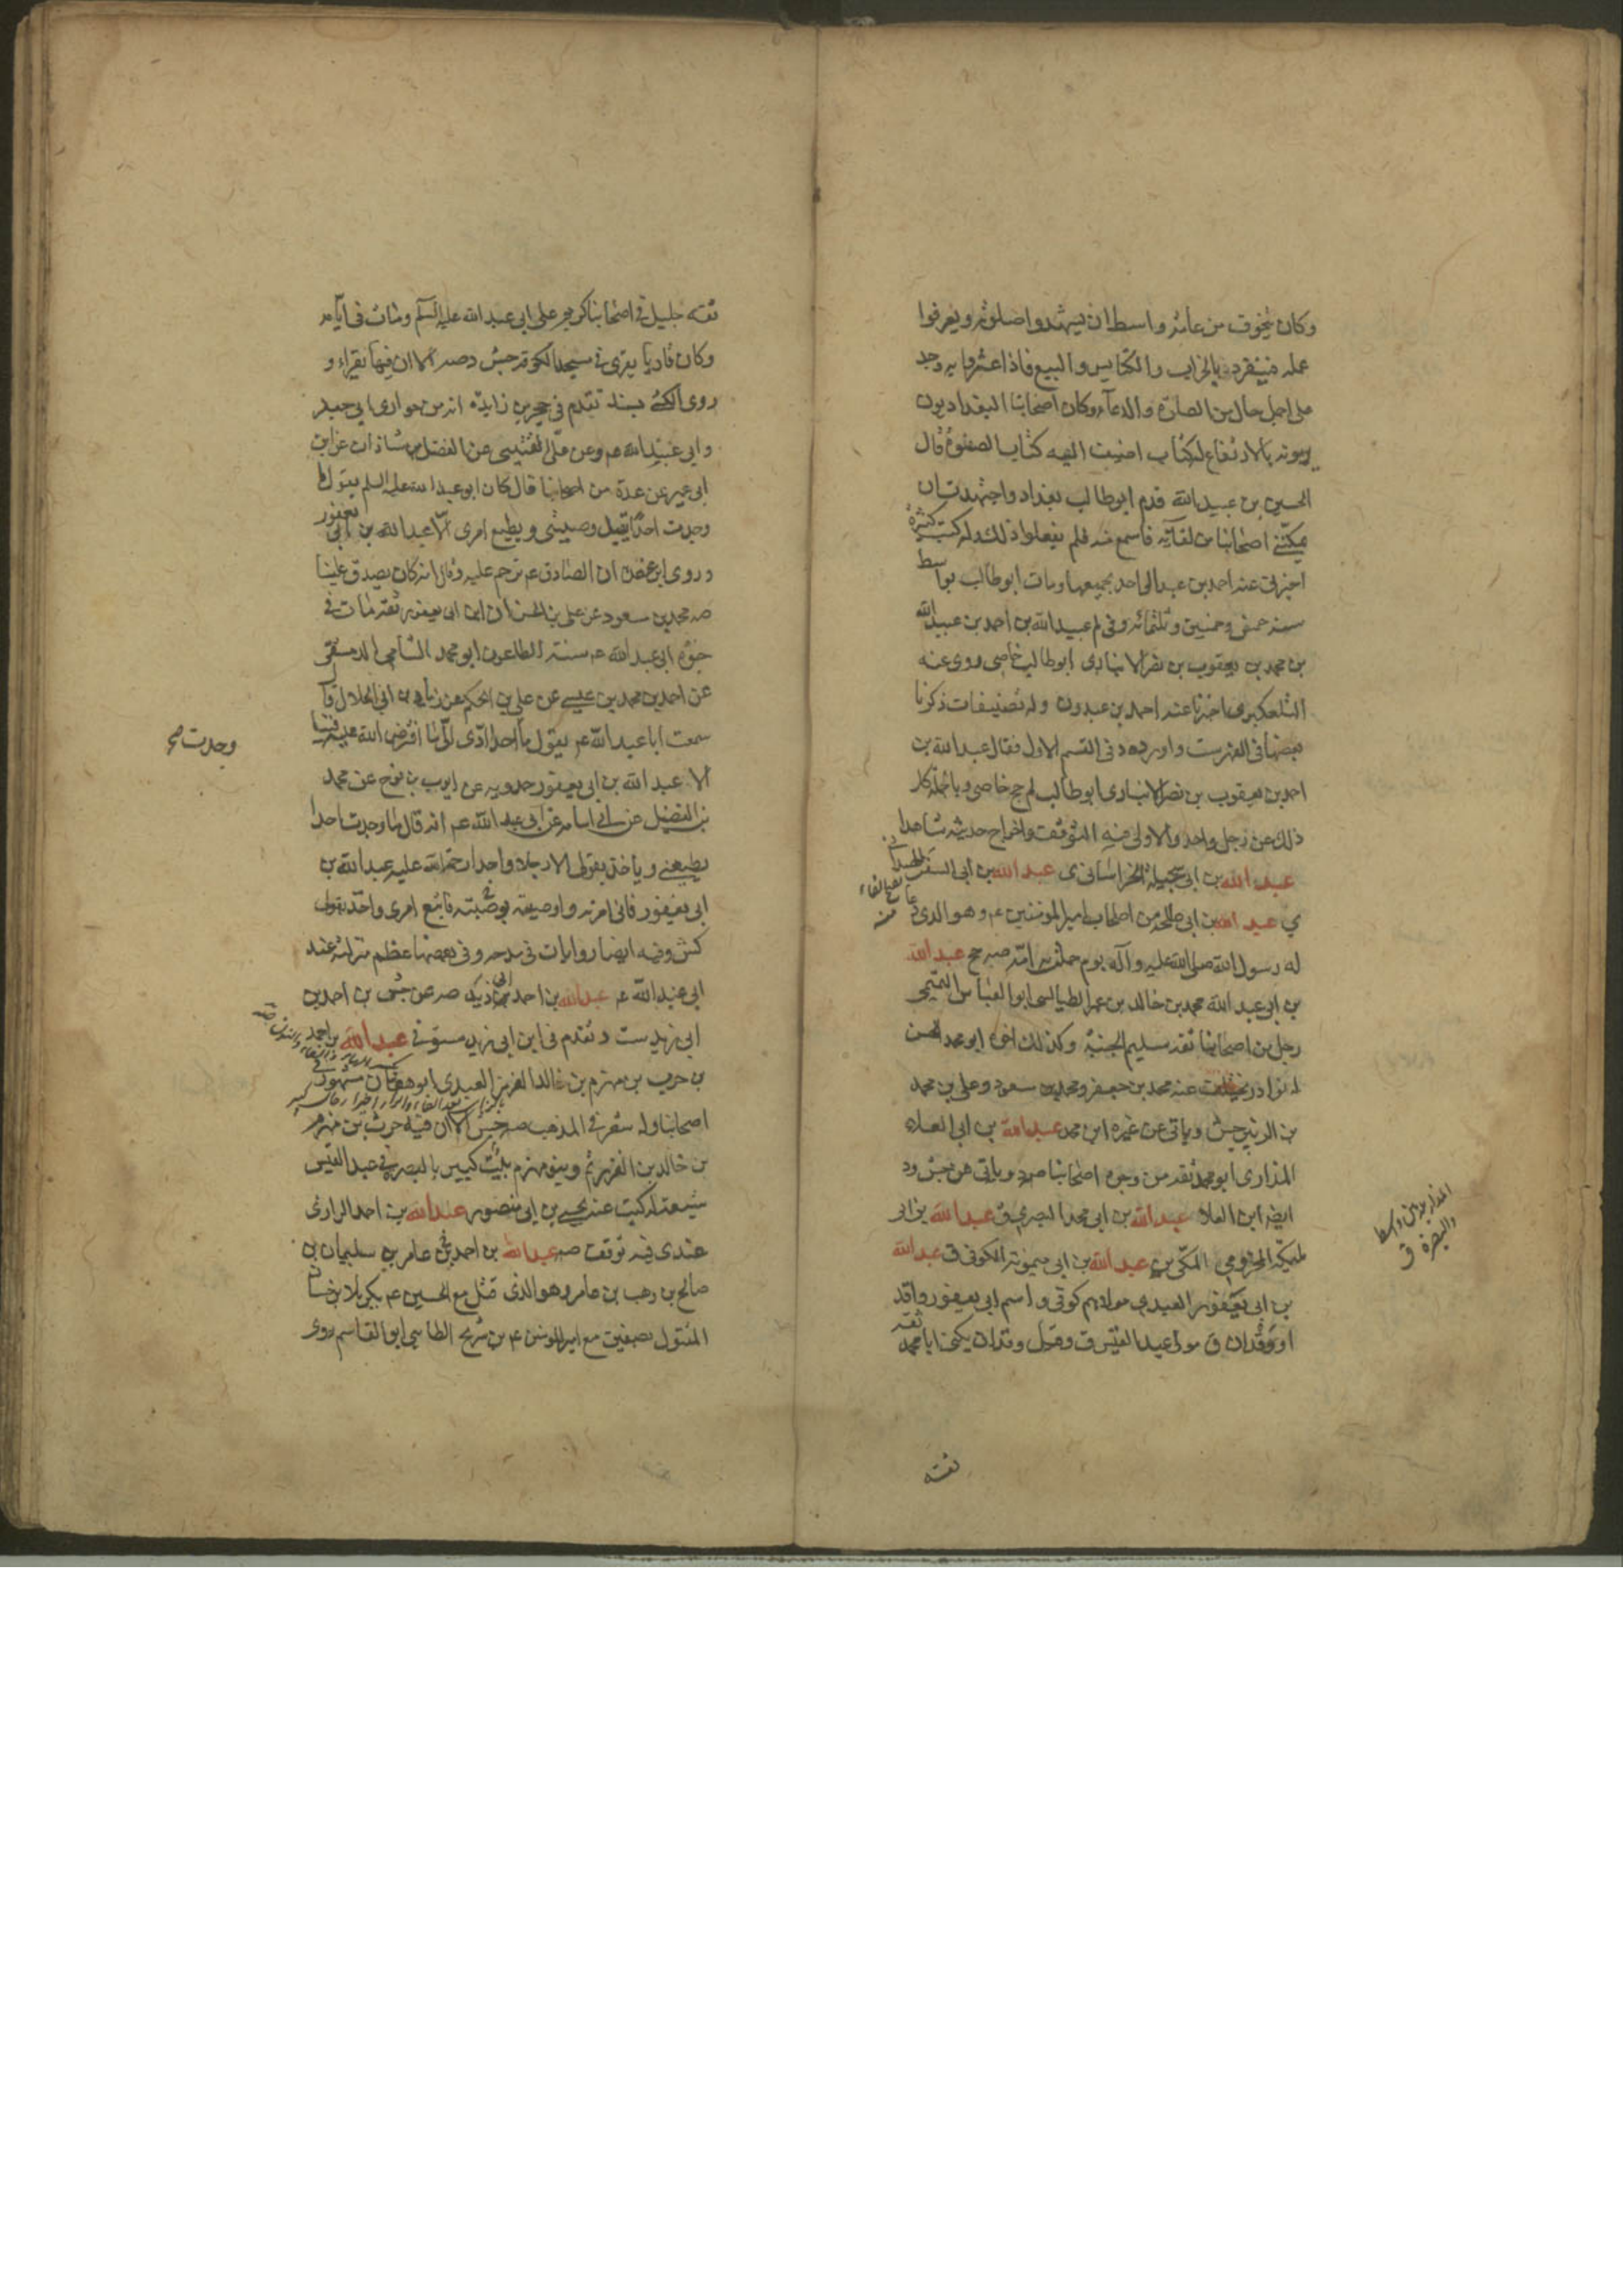 وكان يتخوف من عامة واسط ان يشهدوا صلوته ويعرفوا
عمله فينفرد بالخراب والكنايس والبيع فاذا عثروا به وجد
على اجمل حال من الصلوة والدعاء وكان اصحابنا البغداديون
يرمونه بالارتفاع له كتاب اضيف اليه كتاب الصفوة قال
الحسين بن عبيد الله قدم ابو طالب بغداد واجتهدت ان
يمكنني اصحابنا من لقائه فاسمع منه فلم يفعلوا ذلك وله كتب كثيرة
اخبرني عنه احمد بن عبد الواحد بجميعها ومات ابو طالب بواسط
سنة وخمسين وثلثمائة وفي لم عبيد الله بن احمد بن عبيد الله
بن محمد بن يعقوب بن نصر الانباري ابو طالب خاصي روى عنه
التلعكبري اخبرنا عنه احمد بن عبدون وله تصنيفات ذكرنا
بعضها في الفهرست واورده د في القسم الاول فقال عبد الله بن
احمد بن يعقوب بن نصر الانباري ابو طالب لم جخ خاصي وبالجملة كل
ذلك عن رجل واحد والاولى فيه التوقف واخراج حديثه شاهدا
عبد الله بن ابي الخراساني ى عبد الله بن ابي السفر
ي عبد الله بن ابي طلحة من اصحاب امير المؤمنين ع وهو الذي دعا
له رسول الله صلى الله عليه وآله يوم حملت به امه صه جخ عبد الله
بن ابي عبد الله محمد بن خالد بن عمر الطيالسي ابو العباس التميمي
رجل من اصحابنا ثقة سليم الجنبة وكذلك اخوه ابو محمد الحسن
له نوادر عنه محمد بن جعفر ومحمد بن سعود وعلي بن محمد
بن الزبير جش وياتي عن غيره ابن محمد عبد الله بن ابي العلاء
المذاري ابو محمد ثقة من وجوه اصحابنا صه وياتي عن جش ود
ايضا ابن العلا عبد الله بن ابي محمد البصري ق عبد الله بن ابي
مليكة المخزومي المكي ين عبد الله بن ابي ميمونة الكوفي ق عبد الله
بن ابي يعفور العبدي مولاهم كوفي واسم ابي يعفور واقد
او وقدان ق مولى عبد القيس ق وقيل وقدان يكنى ابا محمد ثقة
المذار بين واسط
والبصرة ق
ثقة
ثقة جليل في اصحابنا كريم على ابي عبد الله عليه السلم ومات في ايامه
وكان قاريا يقرئ في مسجد الكوفة جش وصه الا ان فيها يقراء و
روى الكشي بسند تقدم في حجر بن زايدة انه من حواري ابي جعفر
وابي عبد الله ع وعن علي القتيبي عن الفضل بن شاذان عن ابن
ابي عمير عن عدة من اصحابنا قال كان ابو عبد الله عليه السلم يقول ما
وجدت احدا يقبل وصيتي ويطيع امري الا عبد الله بن ابي يعفور
وروى ابن عقدة ان الصادق ع ترحم عليه وقال انه كان يصدق علينا
صه محمد بن سعود عن علي بن الحسن ان ابن ابي يعفور ثقة مات في
حيوة ابي عبد الله ع سنة الطاعون ابو محمد الشامي الدمشقي
عن احمد بن محمد بن عيسى عن علي بن الحكم عن زياد بن ابي الحلال قال
سمعت ابا عبد الله ع يقول ما احد ادى الينا ما افترض الله عليه فينا
الا عبد الله بن ابي يعفور حمدويه عن ايوب بن نوح عن محمد
بن الفضيل عن ابي اسامة عن ابي عبد الله ع انه قال ما وجدت احدا
يطيعني وياخذ بقولي الا رجلا واحدا رحمة الله عليه عبد الله بن
ابي يعفور فاني امرته واوصيته بوصية فاتبع امري واخذ بقولي
كش وفيه ايضا روايات في مدحه وفي بعضها عظم منزلته عند
ابي عبد الله ع عبد الله بن احمد بن ابي زيد صه عن جش بن احمد بن
ابي زيد ست وتقدم في ابن ابي زيد مستوفي عبد الله بن احمد
بن حرب بن مهزم بن خالد الفزر العبدي ابو هفان مشهور في
اصحابنا وله شعر في المذهب صه جش الا ان فيه حرب بن مهزم
بن خالد بن الفزر ثم وبنو مهزم بيت كبير بالبصرة في عبد القيس
شيعة له كتب عنه يحيى بن ابي منصور عبد الله بن احمد الرازي
عندي فيه توقف صه عبد الله بن احمد بن عامر بن سليمان بن
صالح بن وهب بن عامر وهو الذي قتل مع الحسين ع بكربلا بن حسان
المقتول بصفين مع امير المؤمنين ع بن شريح الطائي ابو القاسم روى
وجدت صح